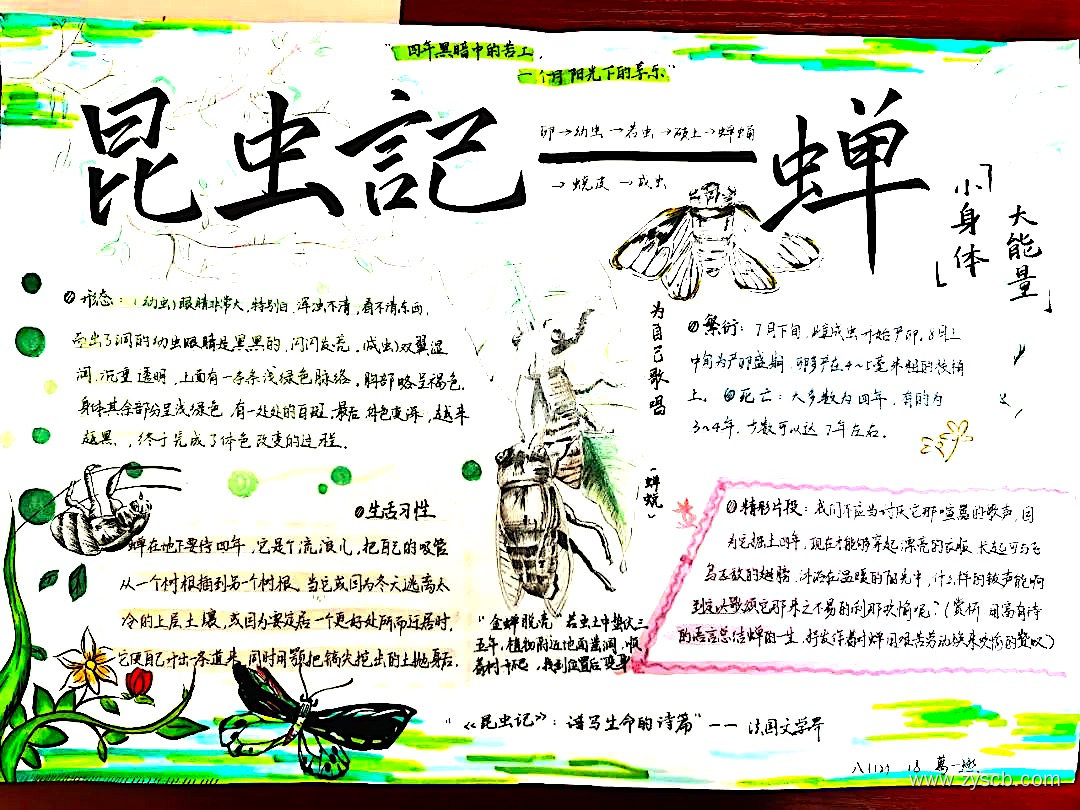 "四年黑暗中的苦工,
一个月阳光下的享乐"
昆虫記——蝉
卵→幼虫→若虫→破土→蝉蛹
→蜕皮→成虫
「小身体
大能量」
为自己歌唱
①形态:(幼虫)眼睛非常大,特别白,浑浊不清,看不清东西,
出了洞的幼虫眼睛是黑黑的,闪闪发亮。(成虫)双翼湿
润,沉重透明,上面有一条条浅绿色脉络。胸部略呈褐色,
身体其余部分呈浅绿色,有一处处的白斑。最后体色变深,越来
越黑,终于完成了体色改变的过程。
②繁衍:7月下旬,雌成虫开始产卵,8月上
中旬为产卵盛期,卵多产在4~5毫米粗的枝梢
上。④死亡:大多数为四年,有的为
3~4年,少数可以达7年左右。
生活习性
蝉在地下要待四年,它是个流浪儿,把自己的吸管
从一个树根插到另一个树根。当它或因为冬天逃离太
冷的上层土壤,或因为要定居一个更好处所而迁居时,
它便自己开出一条道来,同时用颚把镐尖挖出的土抛身后。
(蝉蜕)
"金蝉脱壳"若虫土中蛰伏三
五年,植物附近地面潮润,顺
着树干爬,找到位置后
精彩片段:我们不应当讨厌它那喧嚣的歌声,因
为它掘土四年,现在才能够穿起漂亮的衣服,长起可与飞
鸟匹敌的翅膀,沐浴在温暖的阳光中,什么样的钹声能响
亮到足以歌颂它那来之不易的刹那欢愉呢?(赏析 用富有诗
的语言总结蝉的一生,抒发作者对蝉用艰苦劳动换来欢愉的赞叹)
"《昆虫记》:谱写生命的诗篇"——法国文学界
www.zyscb.com